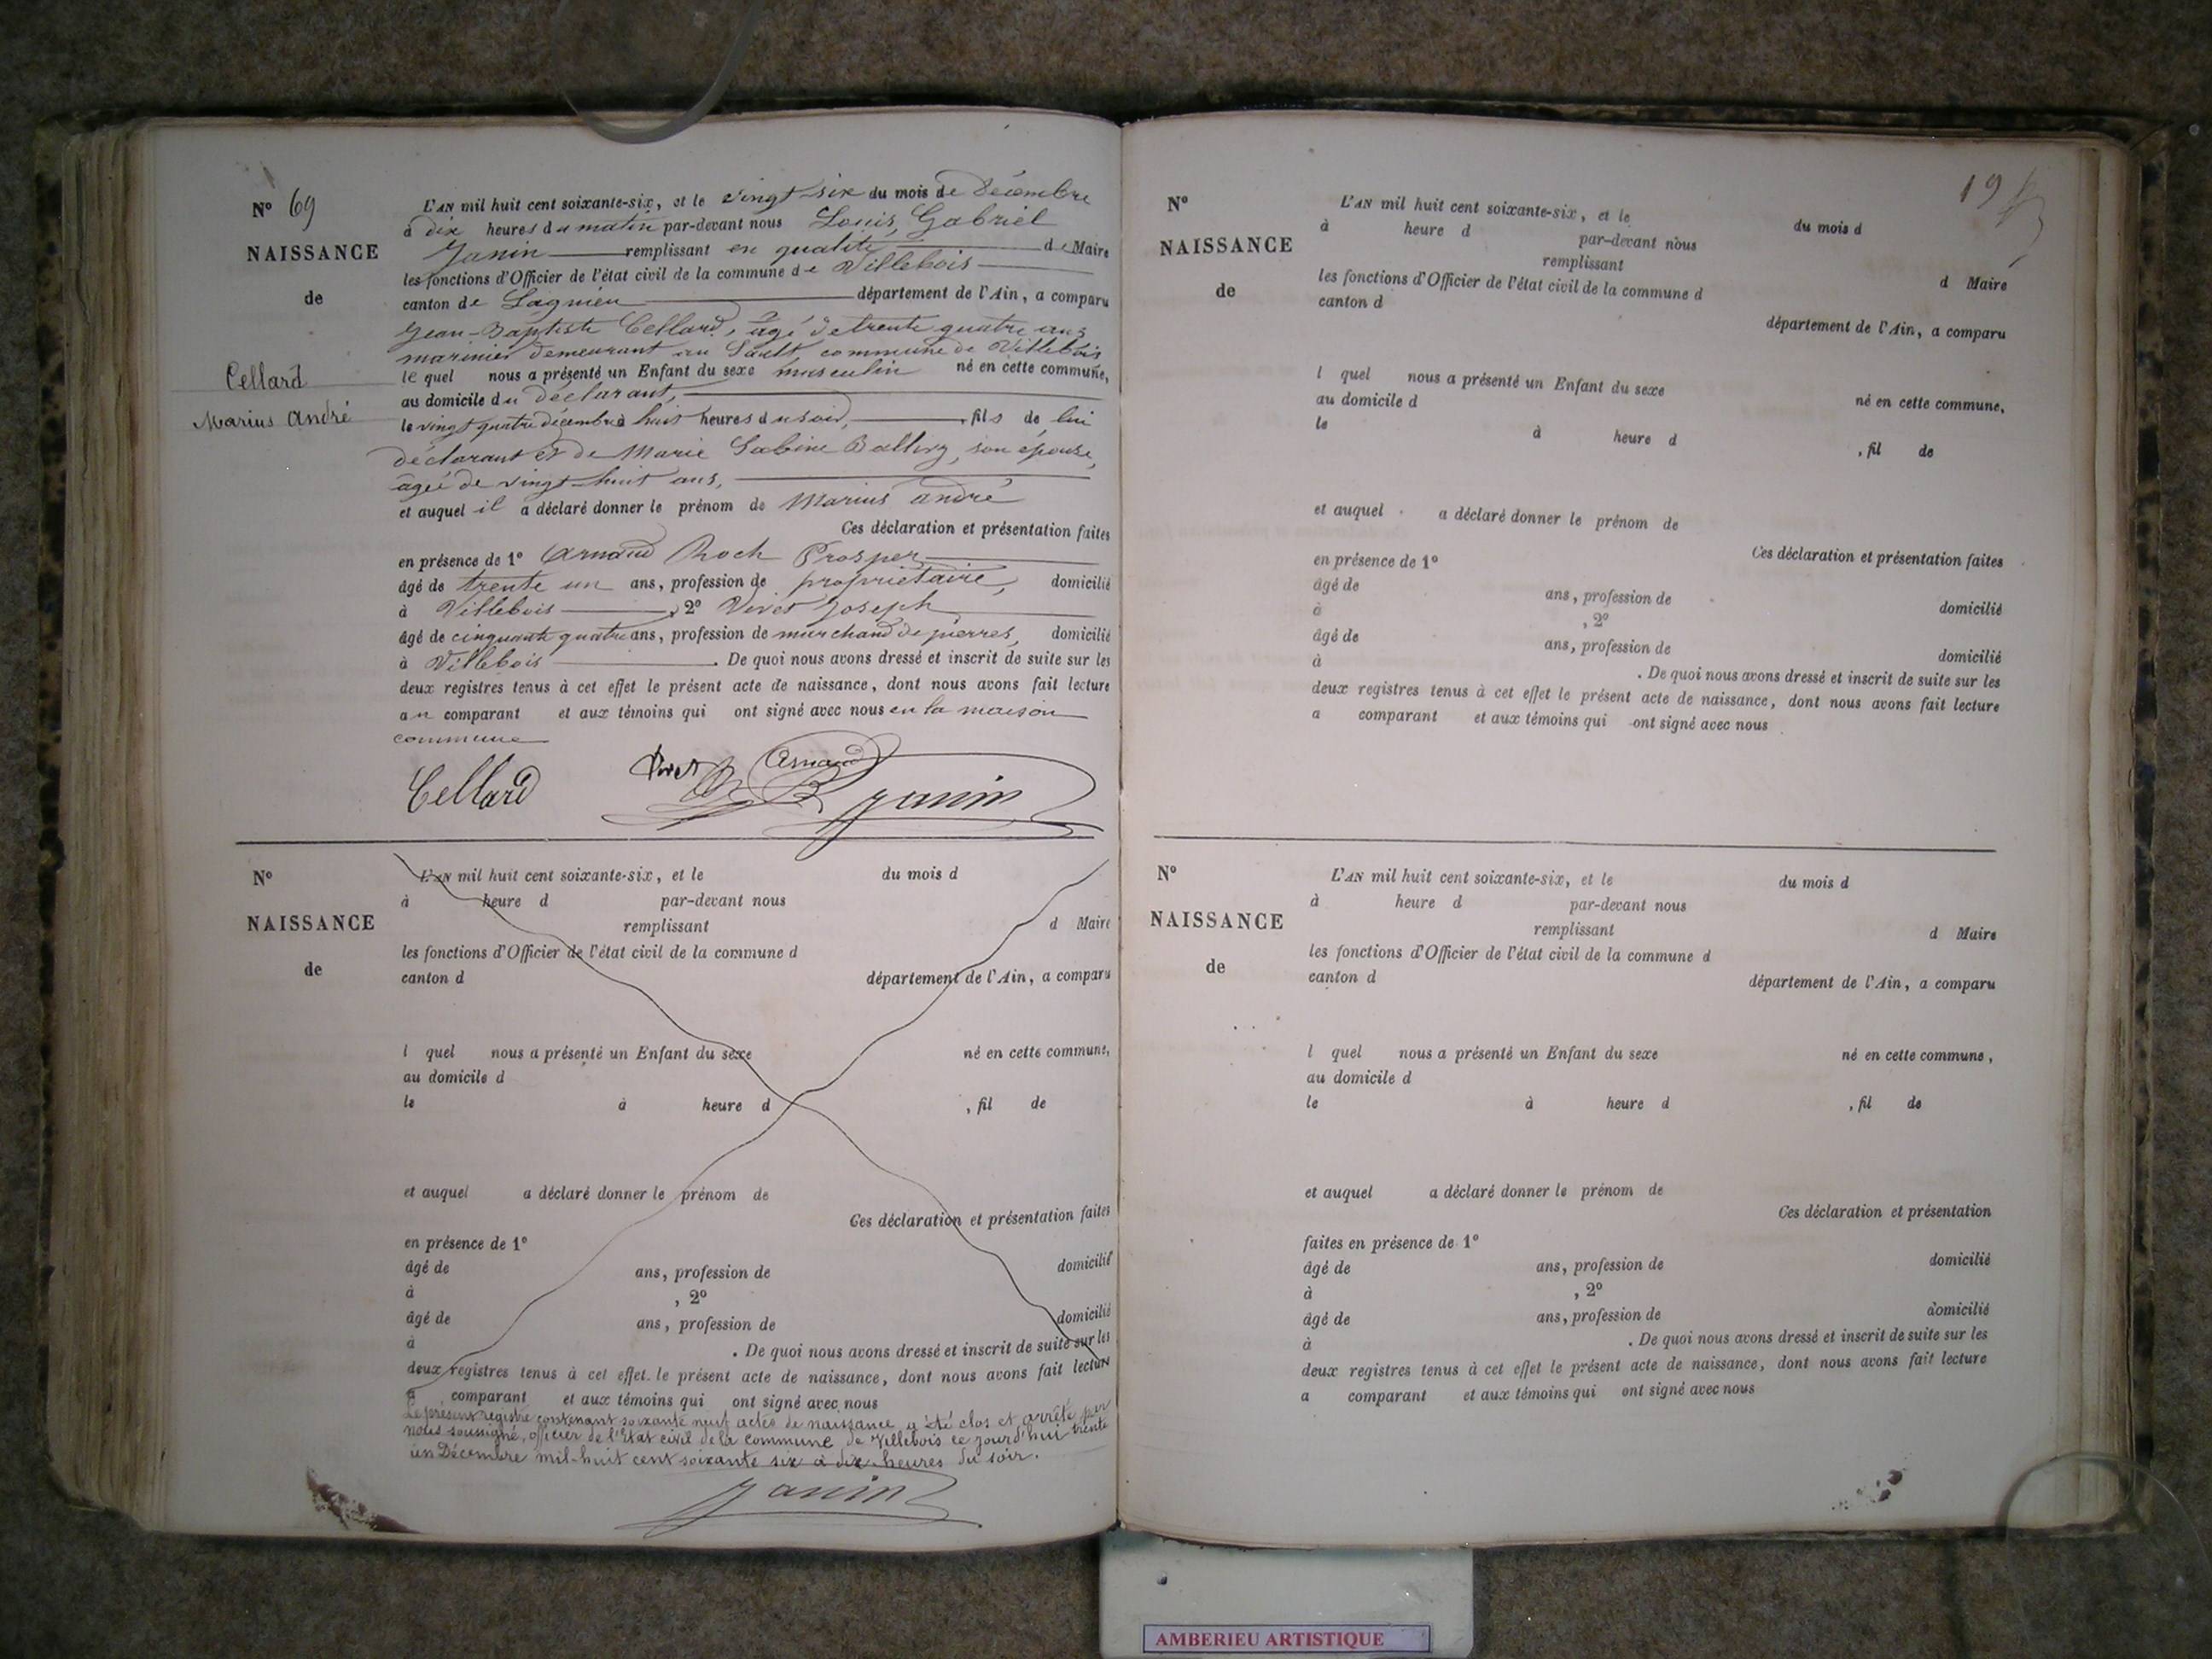 N° 69
NAISSANCE
de
Cellard
Marius André
L'AN mil huit cent soixante-six, et le vingt-six du mois de Décembre
à dix heures du matin par-devant nous Louis, Gabriel
Janin remplissant en qualité de Maire
les fonctions d'Officier de l'état civil de la commune de Villebois
canton de Lagnieu département de l'Ain, a comparu
Jean-Baptiste Cellard, âgé de trente quatre ans
marinier demeurant au Sault, commune de Villebois
le quel nous a présenté un Enfant du sexe masculin né en cette commune,
au domicile du déclarant,
le vingt quatre décembre à huit heures du soir, fils de lui
déclarant et de Marie Sabine, son épouse,
âgée de vingt-huit ans,
et auquel il a déclaré donner le prénom de Marius André
Ces déclaration et présentation faites
en présence de 1° Arnaud Roch Prosper
âgé de trente un ans, profession de propriétaire, domicilié
à Villebois, 2° Vivet Joseph
âgé de cinquante quatre ans, profession de marchand de pierres, domicilié
à Villebois. De quoi nous avons dressé et inscrit de suite sur les
deux registres tenus à cet effet le présent acte de naissance, dont nous avons fait lecture
au comparant et aux témoins qui ont signé avec nous en la maison
commune
Cellard Vivet Arnaud Janin
N°
NAISSANCE
de
L'AN mil huit cent soixante-six, et le du mois d
à heure d par-devant nous
remplissant d Maire
les fonctions d'Officier de l'état civil de la commune d
canton d département de l'Ain, a comparu
l quel nous a présenté un Enfant du sexe né en cette commune,
au domicile d
le à heure d , fil de
et auquel a déclaré donner le prénom de
Ces déclaration et présentation faites
en présence de 1°
âgé de ans, profession de domicilié
à , 2°
âgé de ans, profession de domicilié
à . De quoi nous avons dressé et inscrit de suite sur les
deux registres tenus à cet effet le présent acte de naissance, dont nous avons fait lecture
a comparant et aux témoins qui ont signé avec nous
Le présent registre contenant soixante neuf actes de naissance a été clos et arrêté par
nous soussigné, officier de l'Etat civil de la commune de Villebois ce jourd'hui trente
un Décembre mil-huit cent soixante six à dix heures du soir.
Janin
N°
NAISSANCE
de
L'AN mil huit cent soixante-six, et le du mois d
à heure d par-devant nous
remplissant d Maire
les fonctions d'Officier de l'état civil de la commune d
canton d département de l'Ain, a comparu
l quel nous a présenté un Enfant du sexe né en cette commune,
au domicile d
le à heure d , fil de
et auquel a déclaré donner le prénom de
Ces déclaration et présentation faites
en présence de 1°
âgé de ans, profession de domicilié
à , 2°
âgé de ans, profession de domicilié
à . De quoi nous avons dressé et inscrit de suite sur les
deux registres tenus à cet effet le présent acte de naissance, dont nous avons fait lecture
a comparant et aux témoins qui ont signé avec nous
N°
NAISSANCE
de
L'AN mil huit cent soixante-six, et le du mois d
à heure d par-devant nous
remplissant d Maire
les fonctions d'Officier de l'état civil de la commune d
canton d département de l'Ain, a comparu
l quel nous a présenté un Enfant du sexe né en cette commune,
au domicile d
le à heure d , fil de
et auquel a déclaré donner le prénom de
Ces déclaration et présentation
faites en présence de 1°
âgé de ans, profession de domicilié
à , 2°
âgé de ans, profession de domicilié
à . De quoi nous avons dressé et inscrit de suite sur les
deux registres tenus à cet effet le présent acte de naissance, dont nous avons fait lecture
a comparant et aux témoins qui ont signé avec nous
AMBERIEU ARTISTIQUE